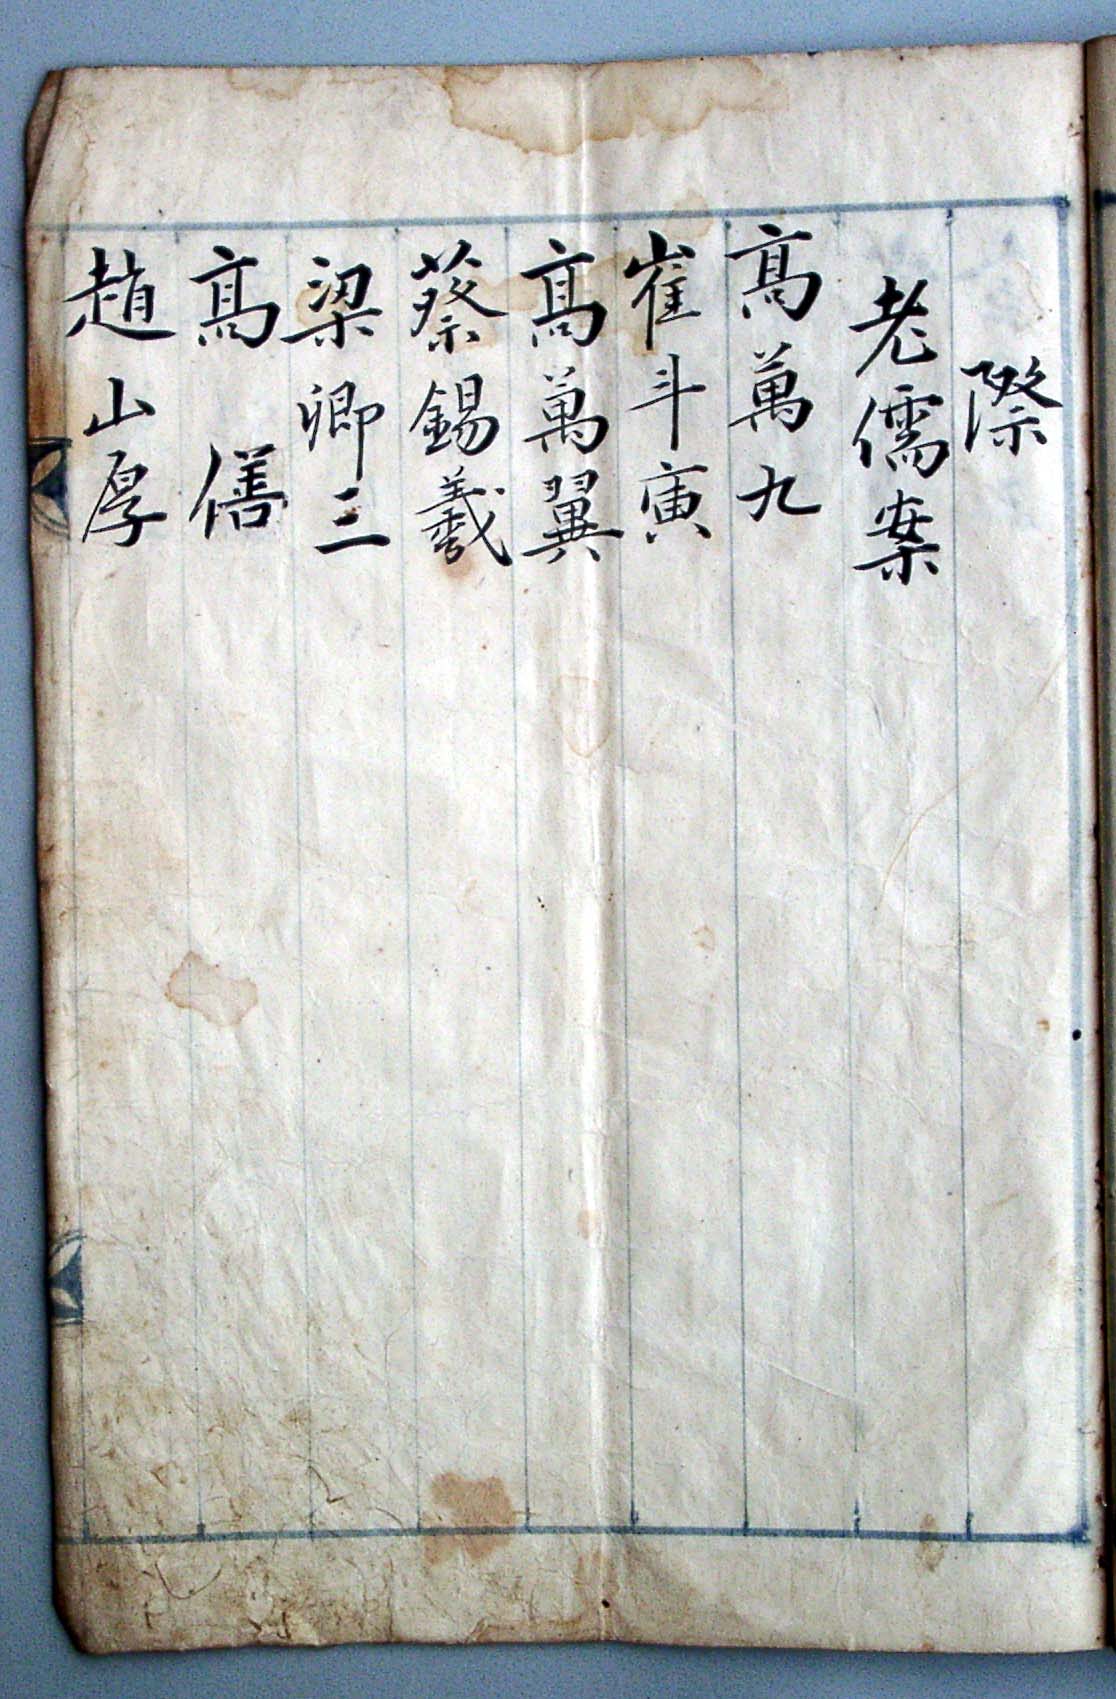 際
老儒案
高萬九
崔斗寅
高萬翼
蔡錫羲
梁卿三
高僐
趙山厚